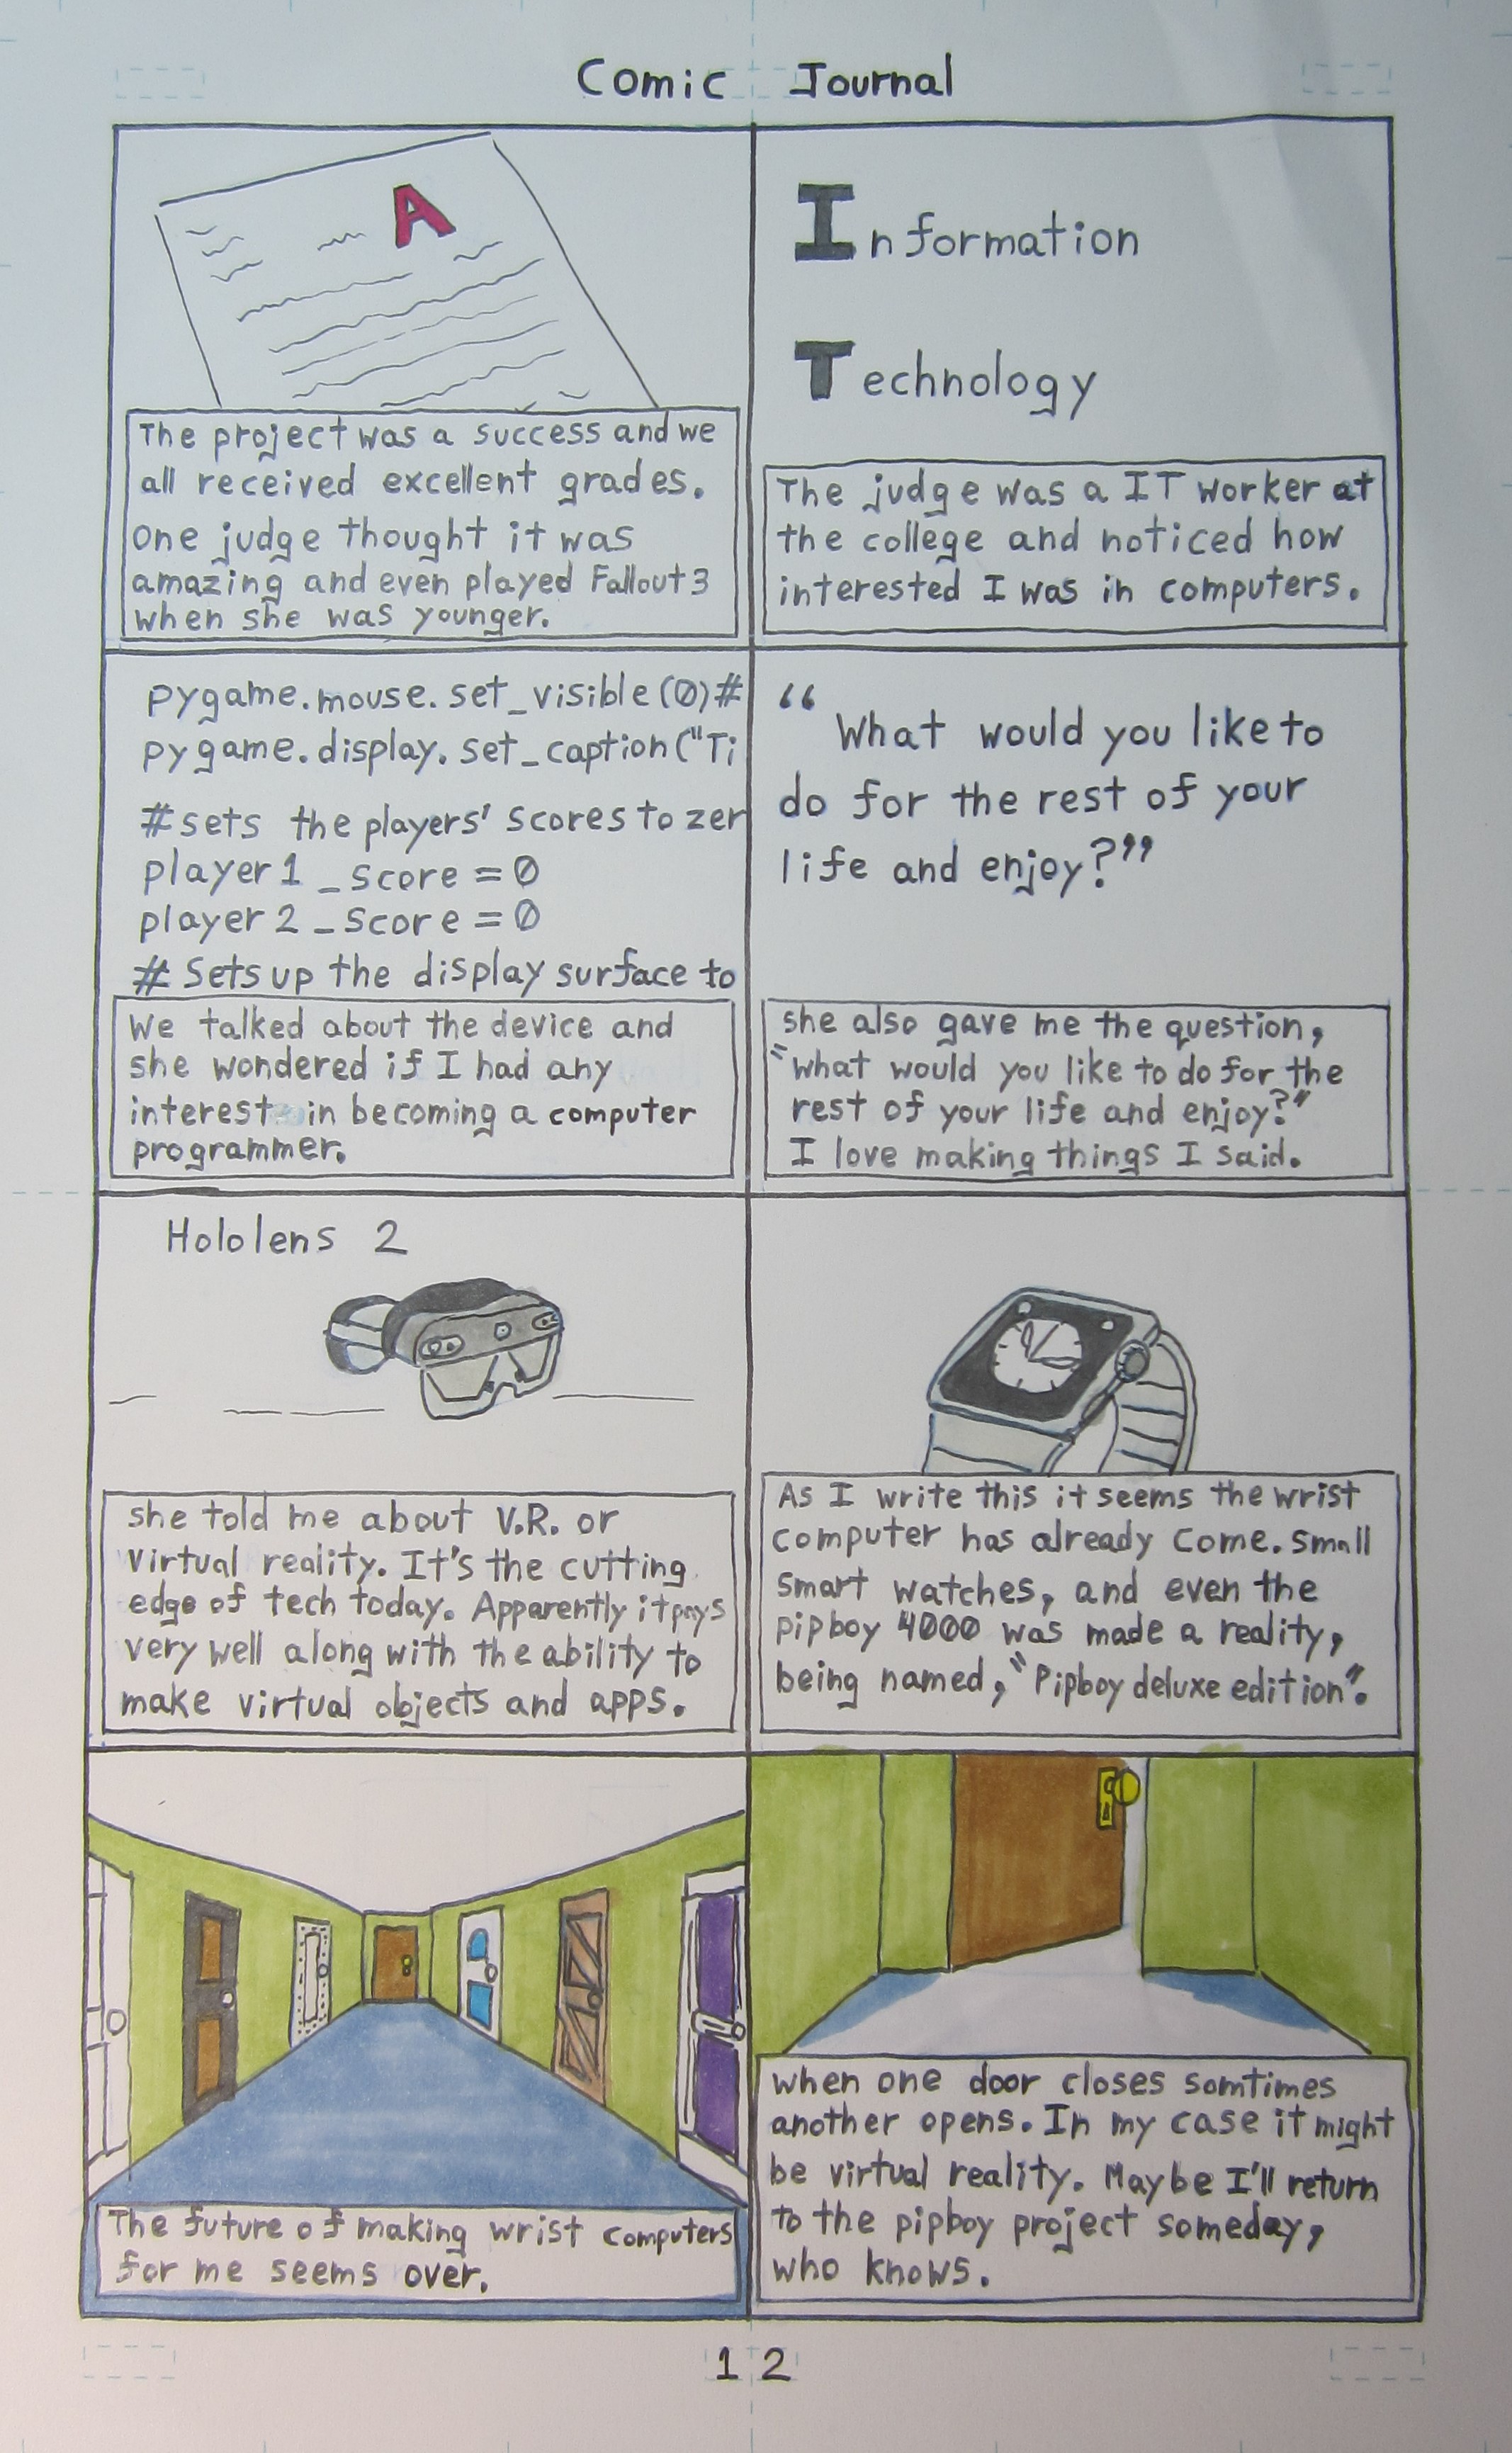 Comic Journal
A
The project was a success and we
all received excellent grades.
One judge thought it was
amazing and even played Fallout 3
when she was younger.
Information
Technology
The judge was a IT worker at
the college and noticed how
interested I was in computers.
pygame.mouse.set_visible(0)#
pygame.display.set_caption("Ti
#sets the players' scores to zer
player1_score=0
player2_score=0
# Sets up the display surface to
We talked about the device and
she wondered if I had any
interest in becoming a computer
programmer.
"What would you like to
do for the rest of your
life and enjoy?"
she also gave me the question,
"what would you like to do for the
rest of your life and enjoy?"
I love making things I said.
Hololens 2
she told me about V.R. or
virtual reality. It's the cutting
edge of tech today. Apparently it pays
very well along with the ability to
make virtual objects and apps.
As I write this it seems the wrist
computer has already come. small
smart watches, and even the
pipboy 4000 was made a reality,
being named, "Pipboy deluxe edition".
The future of making wrist computers
for me seems over.
when one door closes somtimes
another opens. In my case it might
be virtual reality. Maybe I'll return
to the pipboy project someday,
who knows.
12